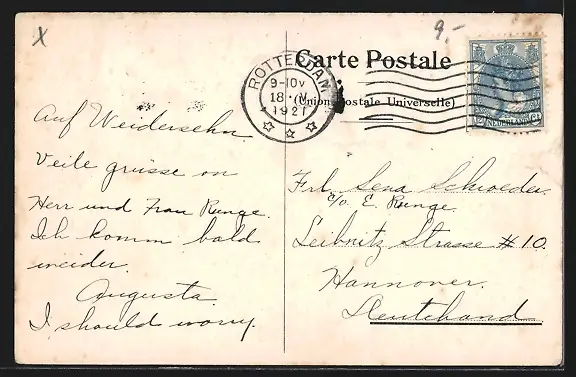 9,-
Carte Postale
(Union Postale Universelle)
ROTTERDAM
9-10V
18 IV
1921
NEDERLAND
Auf Weidersehn
Veile grüsse on
Herr und Frau Runge.
Ich komm bald
weider.
Augusta.
I should worry.
Frl. Lena Schroeder.
c/o E. Runge.
Leibnitz Strasse # 10.
Hannover.
Deutchand